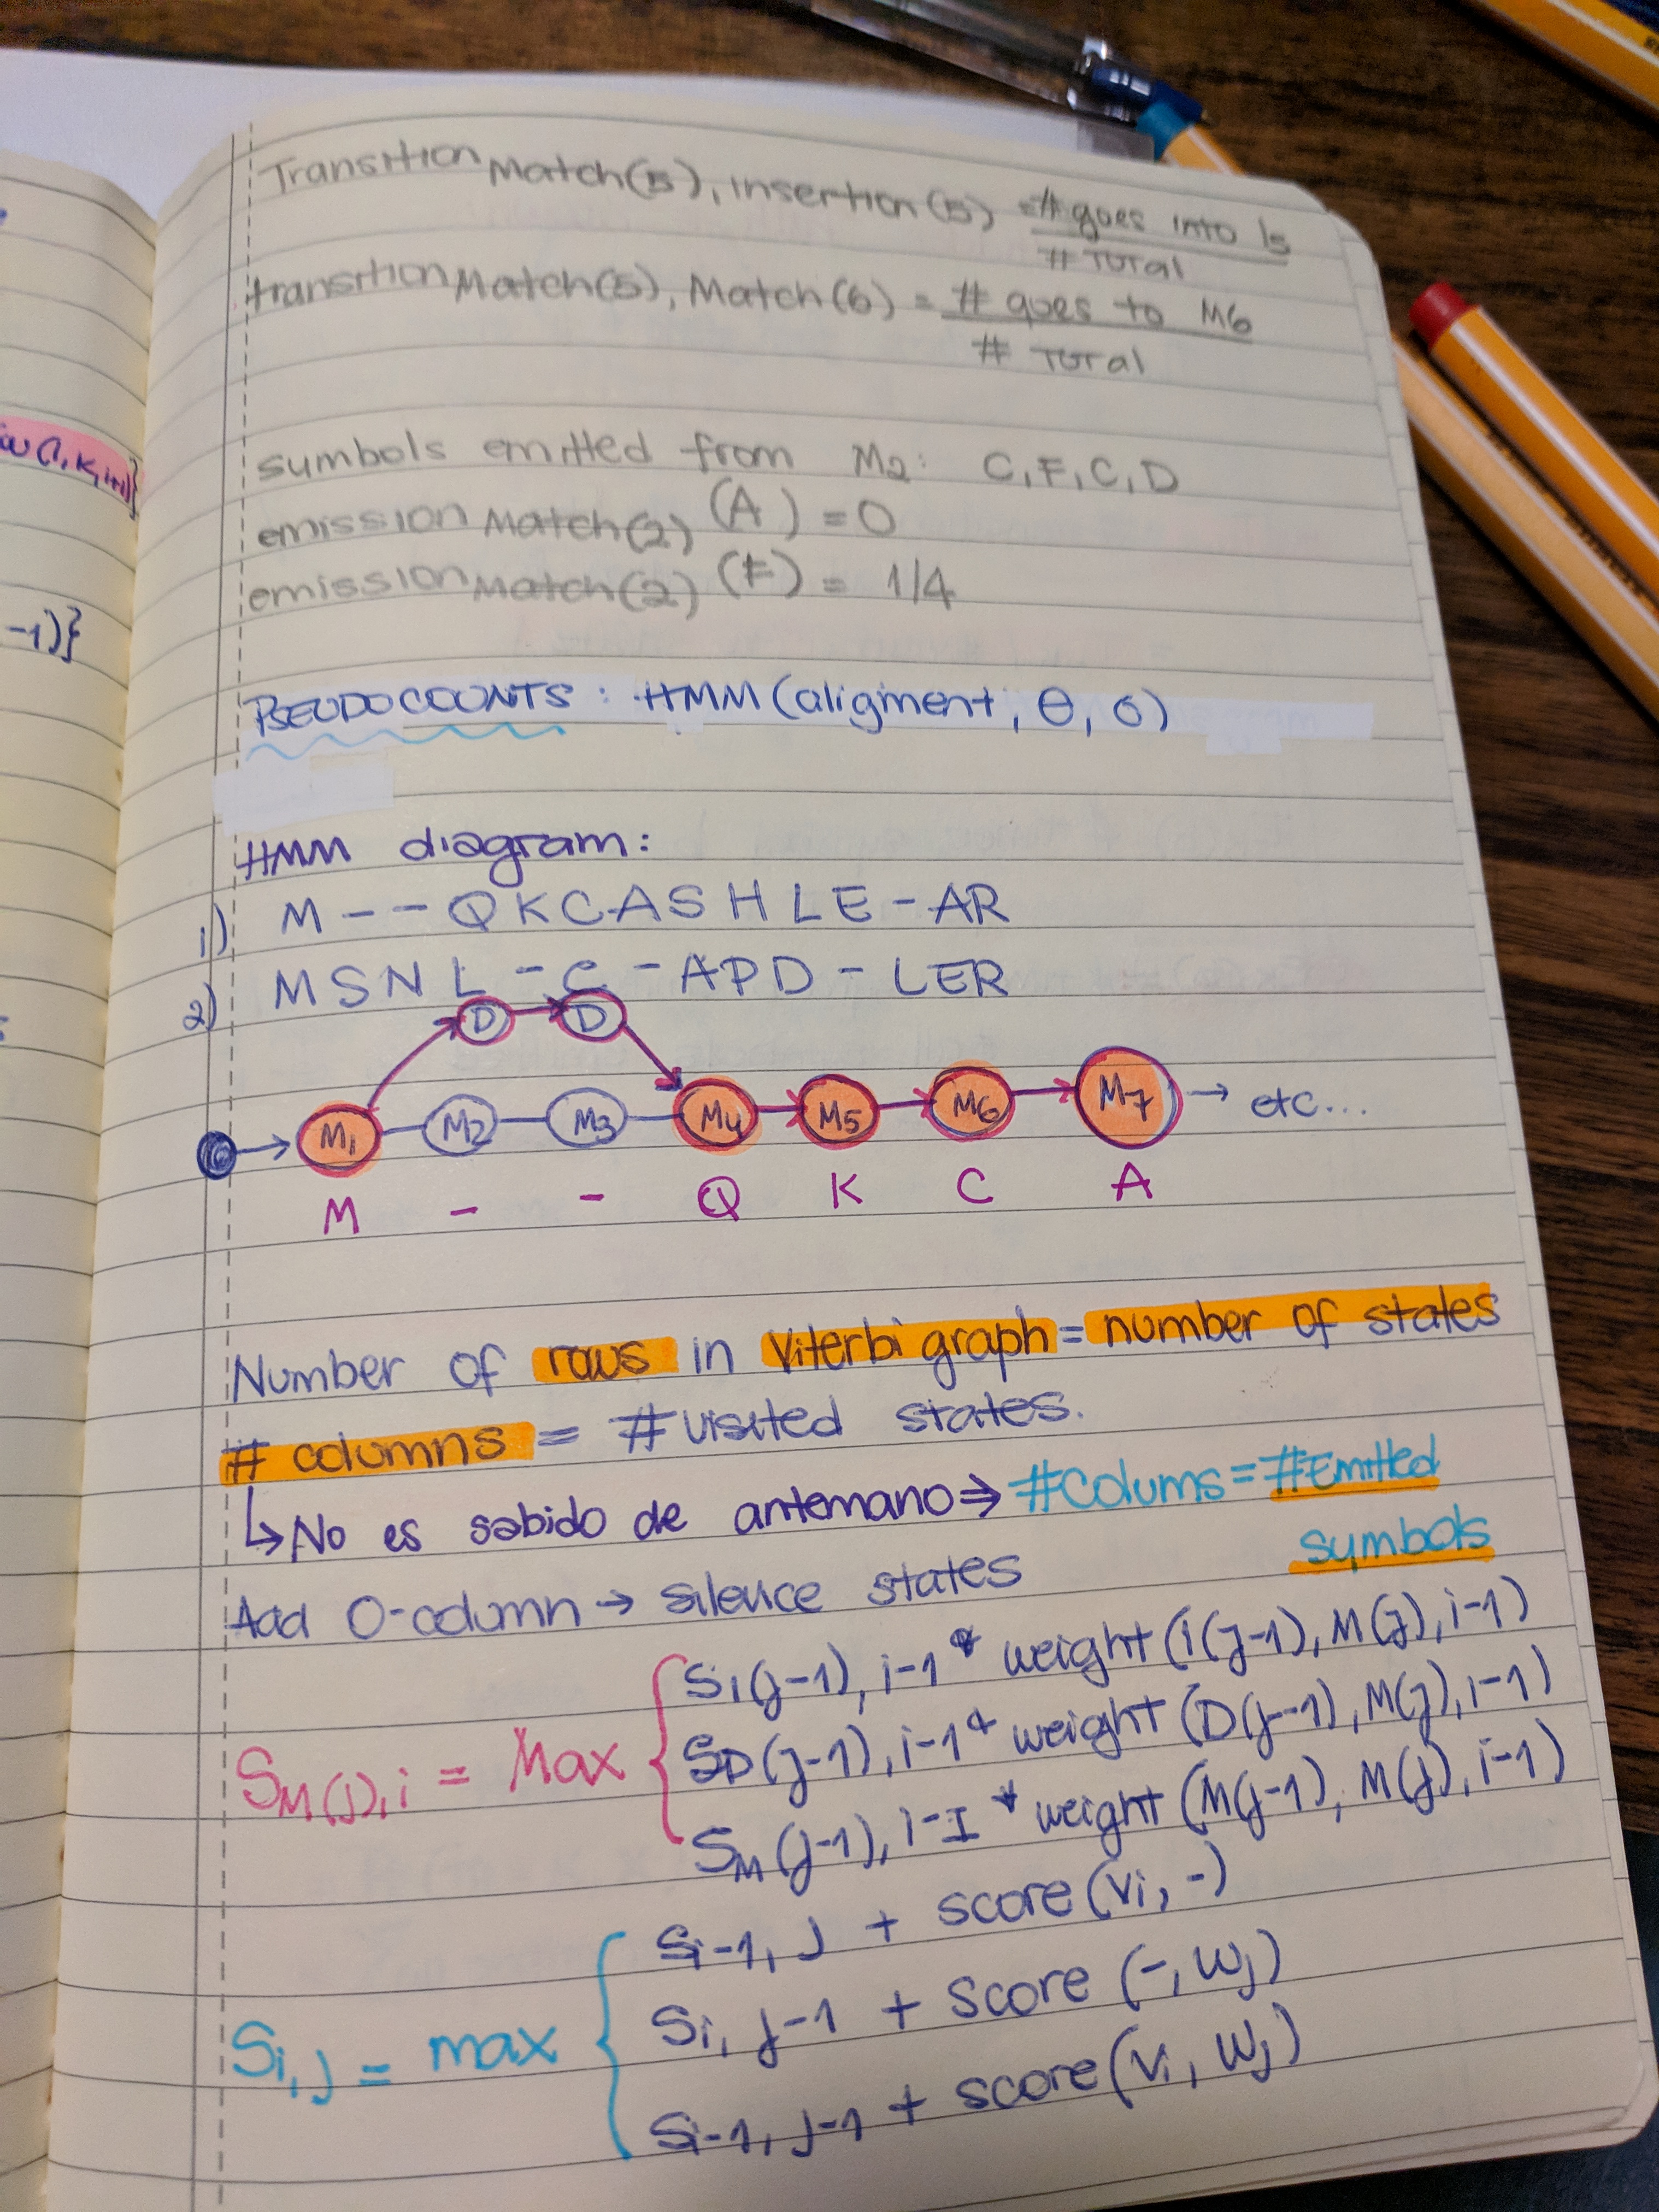 Transition Match(5), Insertion(5) = # goes into I5
# Total
transition Match(5), Match(6) = # goes to M6
# Total
sumbols emitted from M2: C, F, C, D
emission Match(2) (A) = 0
emission Match(2) (F) = 1/4
PSEUDOCOUNTS : HMM (aligment, θ, σ)
-1)}
HMM diagram:
1) M - - Q K C A S H L E - A R
2) M S N L - C - A P D - L E R
D D
M1 M2 M3 M4 M5 M6 M7 → etc...
M - - Q K C A
Number of rows in Viterbi graph = number of states
# columns = # visited states.
↳ No es sabido de antemano ⇒ #Colums = #Emitted
symbols
Add 0-column → silence states
SI(j-1), i-1 * weight (I(j-1), M(j), i-1)
SM(j), i = Max { SD(j-1), i-1 * weight (D(j-1), M(j), i-1)
SM(j-1), i-I * weight (M(j-1), M(j), i-1)
Si-1, j + score (vi, -)
Si, j = max { Si, j-1 + score (-, wj)
Si-1, j-1 + score (vi, wj)